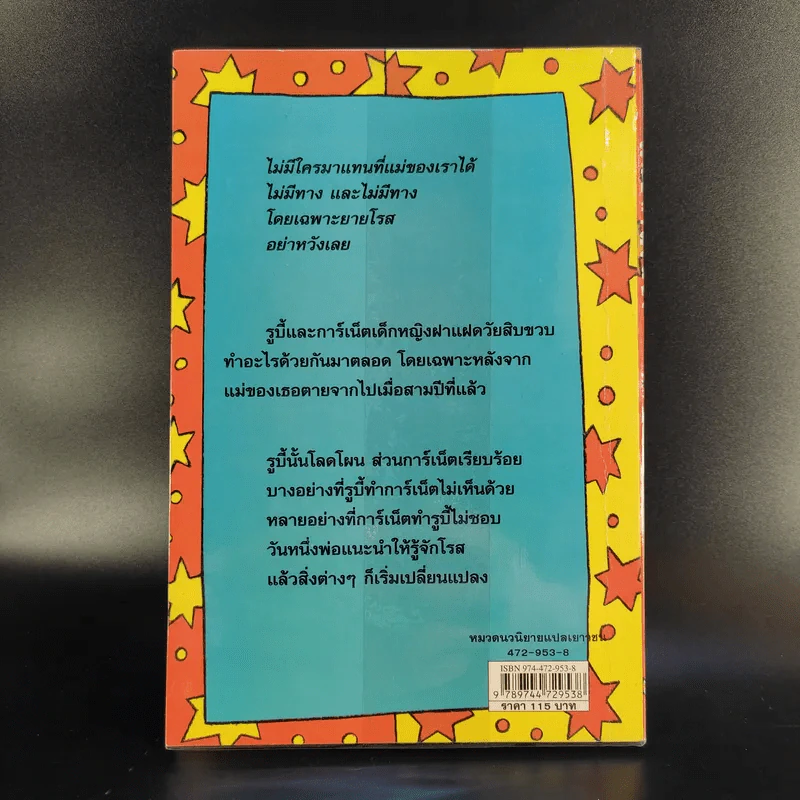 ไม่มีใครมาแทนที่แม่ของเราได้
ไม่มีทาง และไม่มีทาง
โดยเฉพาะยายโรส
อย่าหวังเลย
รูบี้และการ์เน็ตเด็กหญิงฝาแฝดวัยสิบขวบ
ทำอะไรด้วยกันมาตลอด โดยเฉพาะหลังจาก
แม่ของเธอตายจากไปเมื่อสามปีที่แล้ว
รูบี้นั้นโลดโผน ส่วนการ์เน็ตเรียบร้อย
บางอย่างที่รูบี้ทำการ์เน็ตไม่เห็นด้วย
หลายอย่างที่การ์เน็ตทำรูบี้ไม่ชอบ
วันหนึ่งพ่อแนะนำให้รู้จักโรส
แล้วสิ่งต่างๆ ก็เริ่มเปลี่ยนแปลง
หมวดนวนิยายแปลเยาวชน
472-953-8
ISBN 974-472-953-8
9 789744 729538
ราคา 115 บาท